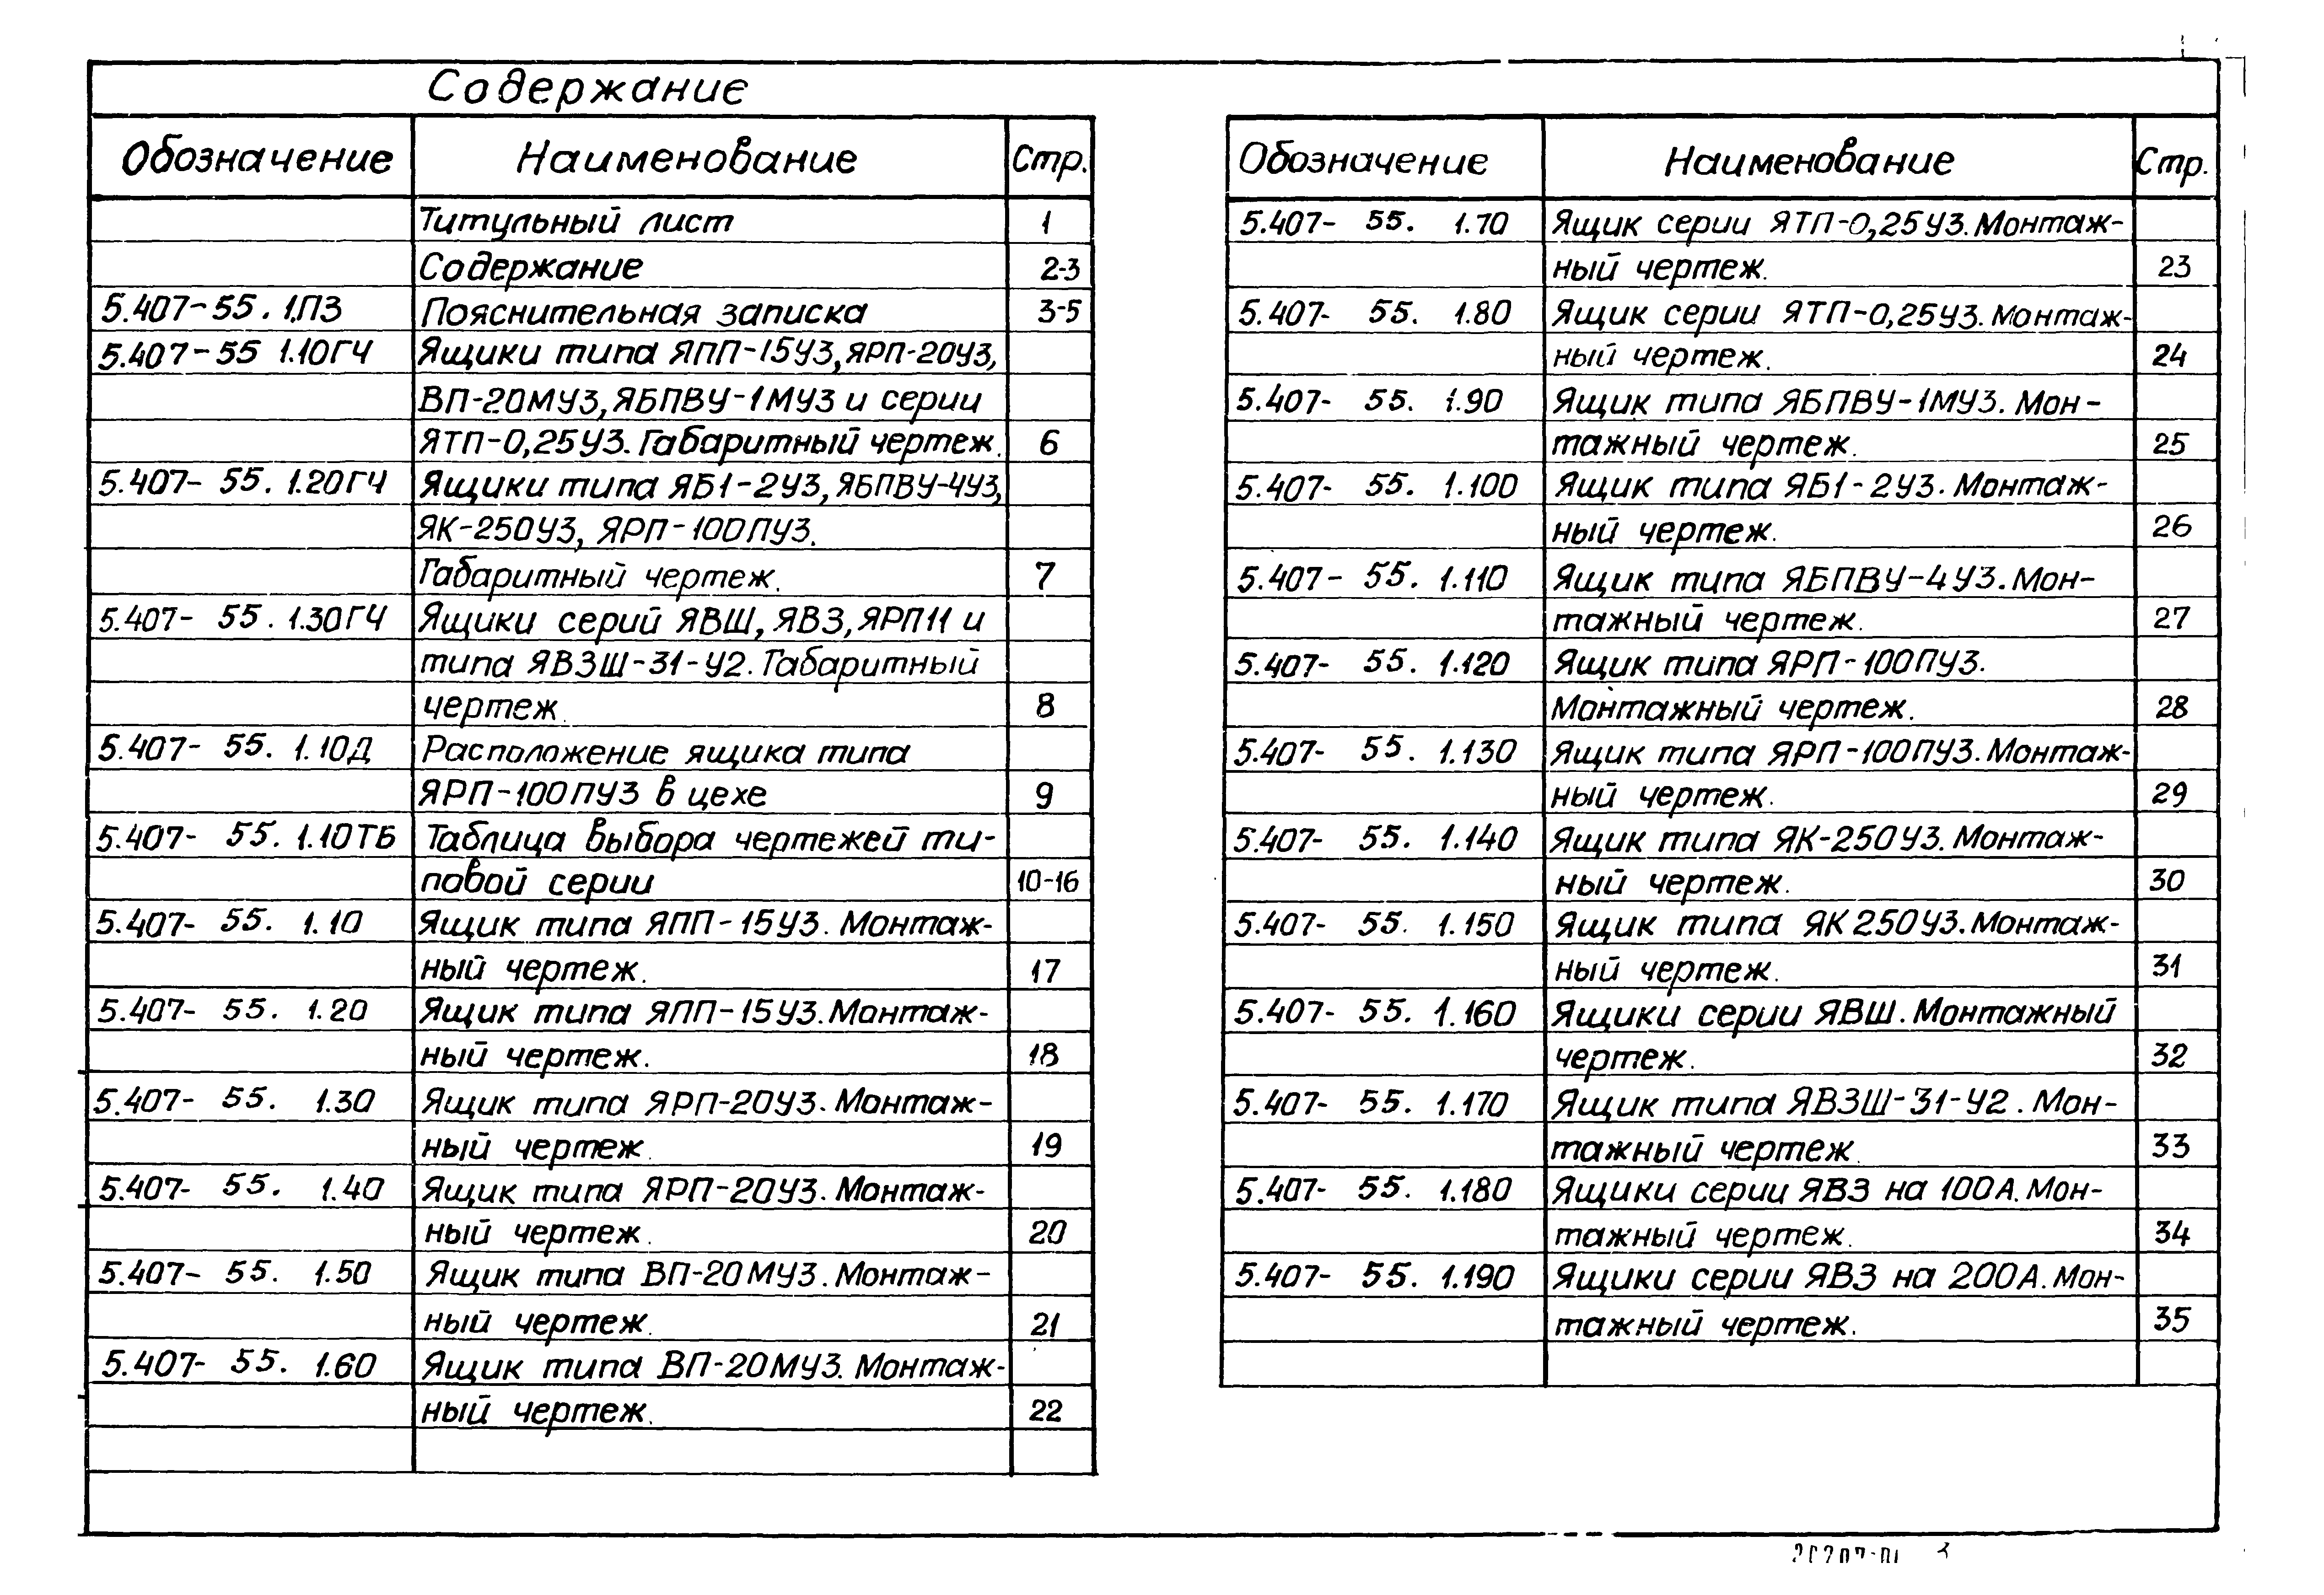 Содержание
Обозначение Наименование Стр.
Титульный лист 1
Содержание 2-3
5.407-55.1.ПЗ Пояснительная записка 3-5
5.407-55 1.10ГЧ Ящики типа ЯПП-15У3, ЯРП-20У3,
ВП-20МУ3, ЯБПВУ-1МУ3 и серии
ЯТП-0,25У3. Габаритный чертеж. 6
5.407-55. 1.20ГЧ Ящики типа ЯБ1-2У3, ЯБПВУ-4У3,
ЯК-250У3, ЯРП-100ПУ3.
Габаритный чертеж. 7
5.407-55. 1.30ГЧ Ящики серий ЯВШ, ЯВЗ, ЯРП11 и
типа ЯВЗШ-31-У2. Габаритный
чертеж. 8
5.407-55. 1.10Д Расположение ящика типа
ЯРП-100ПУ3 в цехе 9
5.407-55. 1.10ТБ Таблица выбора чертежей ти-
повой серии 10-16
5.407-55. 1.10 Ящик типа ЯПП-15У3. Монтаж-
ный чертеж. 17
5.407-55. 1.20 Ящик типа ЯПП-15У3. Монтаж-
ный чертеж. 18
5.407-55. 1.30 Ящик типа ЯРП-20У3. Монтаж-
ный чертеж. 19
5.407-55. 1.40 Ящик типа ЯРП-20У3. Монтаж-
ный чертеж. 20
5.407-55. 1.50 Ящик типа ВП-20МУ3. Монтаж-
ный чертеж. 21
5.407-55. 1.60 Ящик типа ВП-20МУ3. Монтаж-
ный чертеж. 22
Обозначение Наименование Стр.
5.407-55. 1.70 Ящик серии ЯТП-0,25У3. Монтаж-
ный чертеж. 23
5.407-55. 1.80 Ящик серии ЯТП-0,25У3. Монтаж-
ный чертеж. 24
5.407-55. 1.90 Ящик типа ЯБПВУ-1МУ3. Мон-
тажный чертеж. 25
5.407-55. 1.100 Ящик типа ЯБ1-2У3. Монтаж-
ный чертеж. 26
5.407-55. 1.110 Ящик типа ЯБПВУ-4У3. Мон-
тажный чертеж. 27
5.407-55. 1.120 Ящик типа ЯРП-100ПУ3.
Монтажный чертеж. 28
5.407-55. 1.130 Ящик типа ЯРП-100ПУ3. Монтаж-
ный чертеж. 29
5.407-55. 1.140 Ящик типа ЯК-250У3. Монтаж-
ный чертеж. 30
5.407-55. 1.150 Ящик типа ЯК 250У3. Монтаж-
ный чертеж. 31
5.407-55. 1.160 Ящики серии ЯВШ. Монтажный
чертеж. 32
5.407-55. 1.170 Ящик типа ЯВЗШ-31-У2. Мон-
тажный чертеж. 33
5.407-55. 1.180 Ящики серии ЯВЗ на 100А. Мон-
тажный чертеж. 34
5.407-55. 1.190 Ящики серии ЯВЗ на 200А. Мон-
тажный чертеж. 35